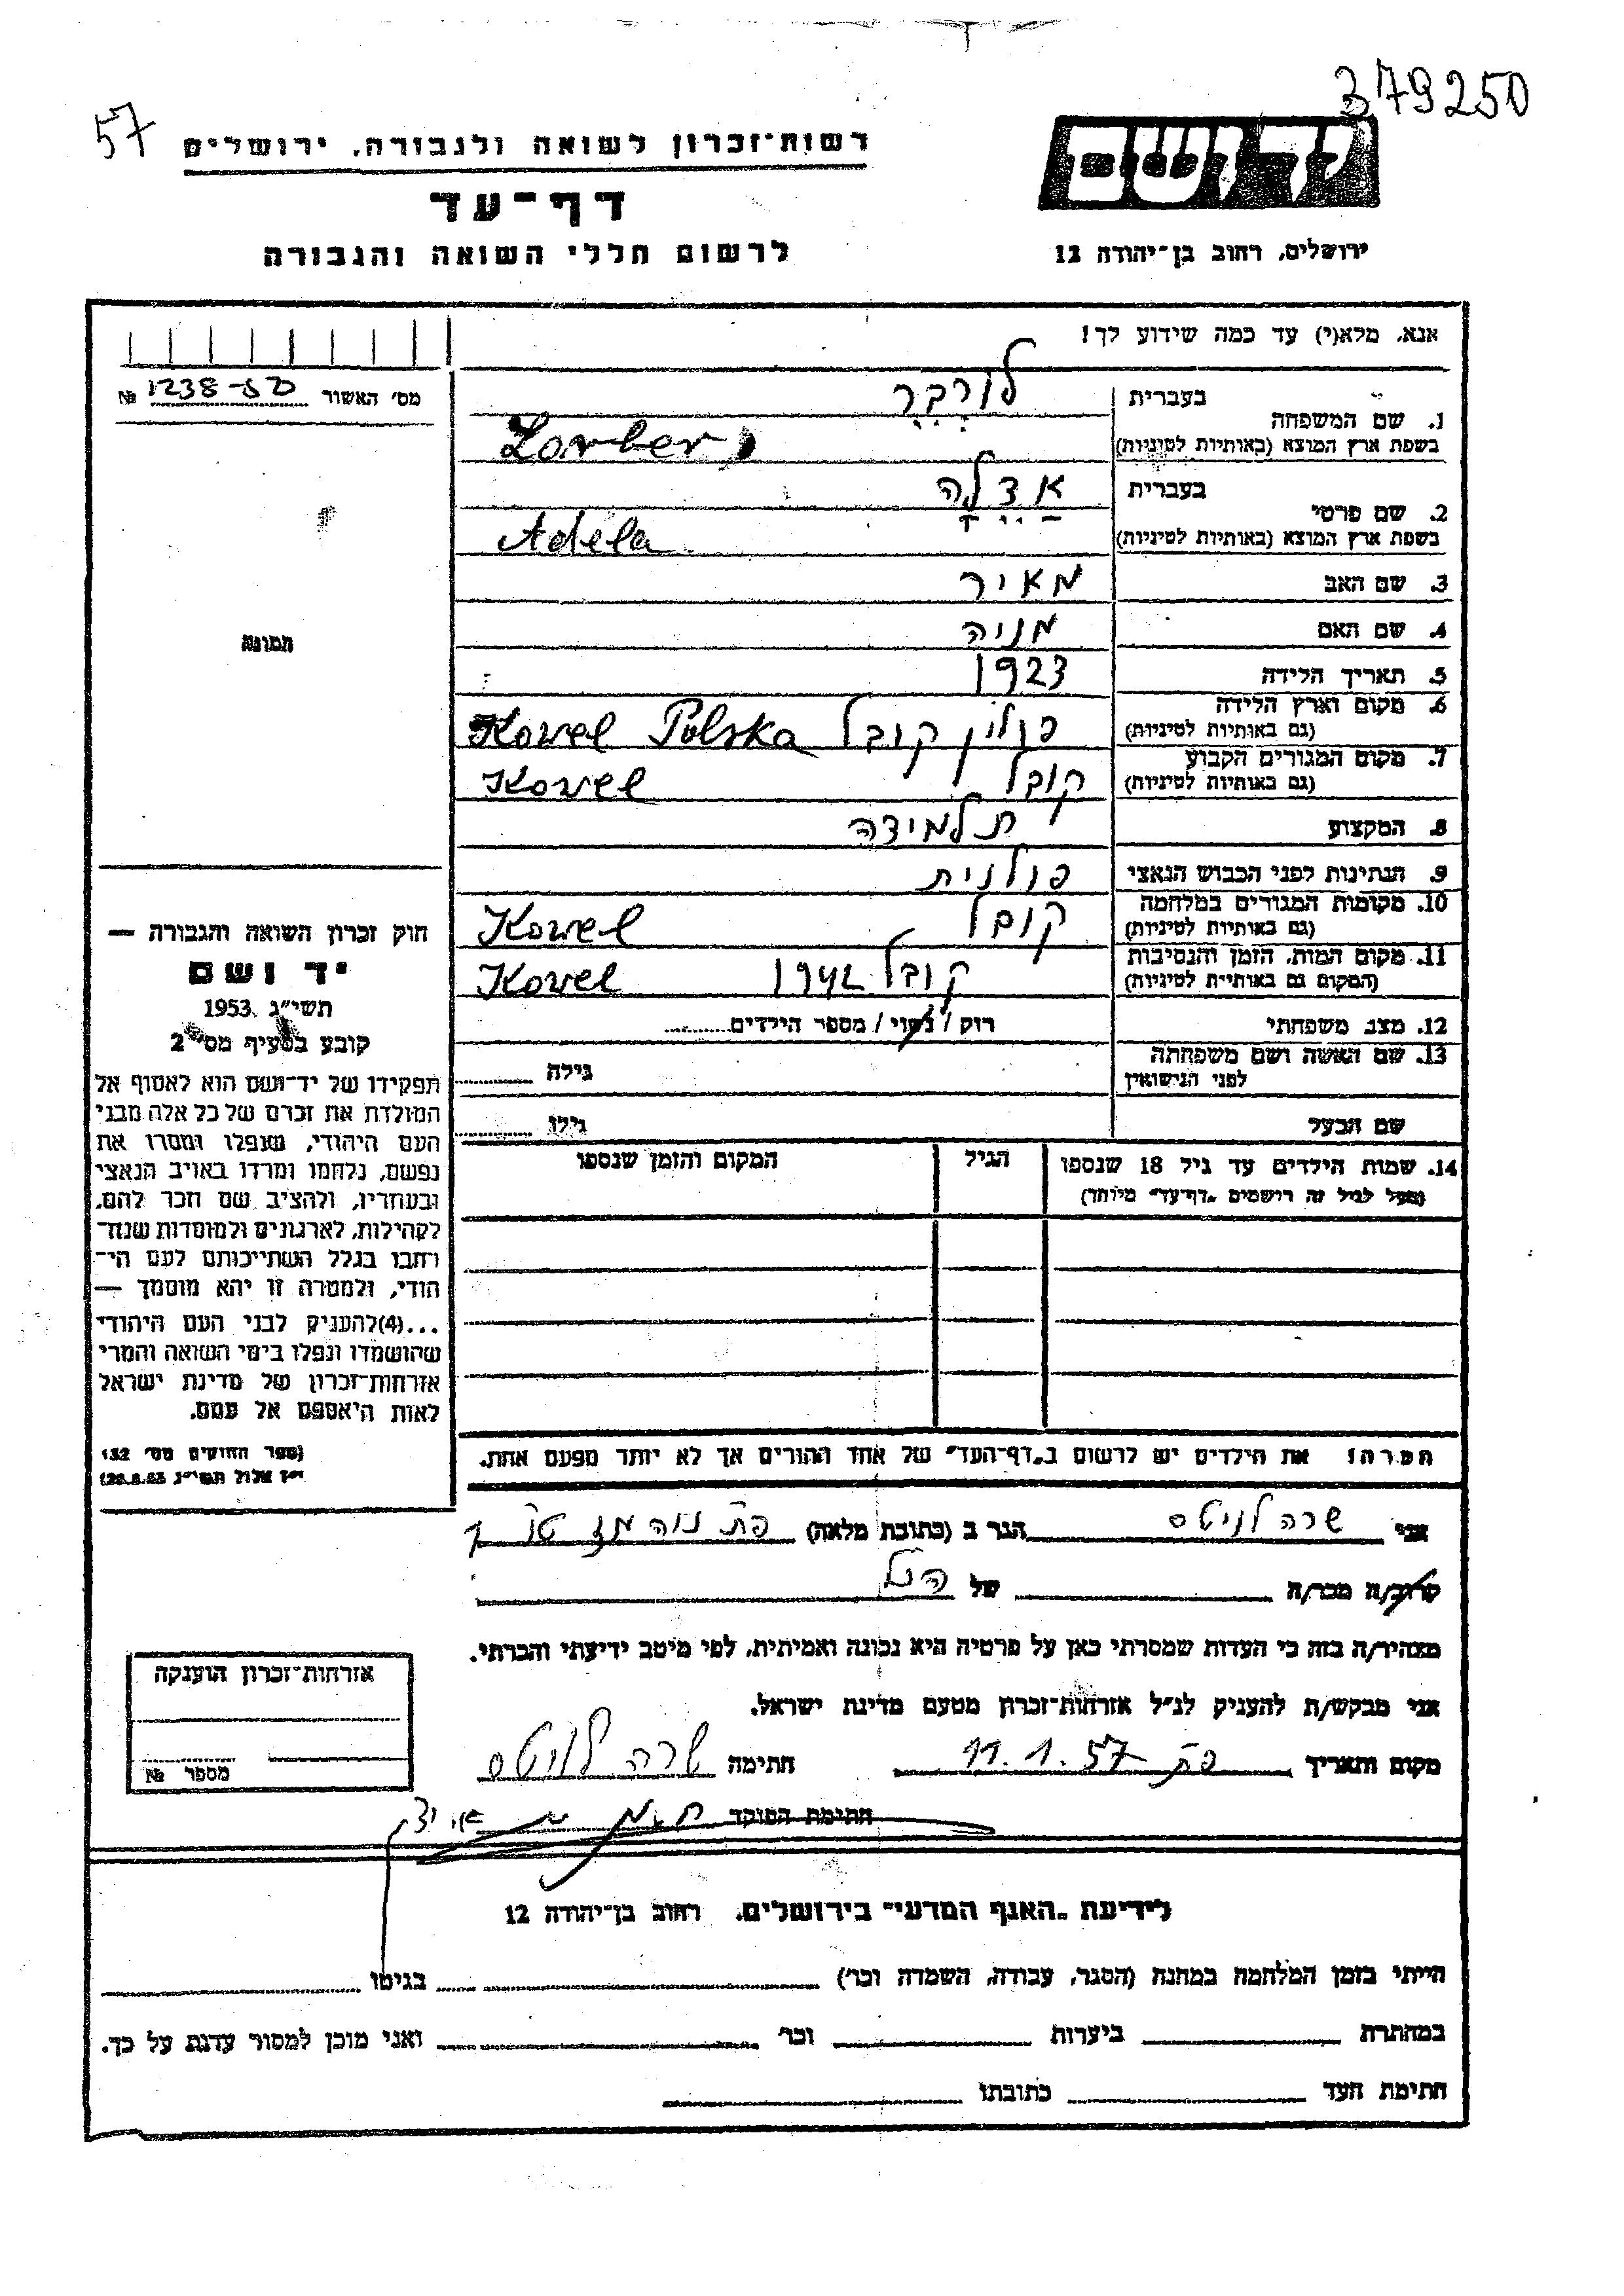 379250
57
רשות-זכרון לשואה ולגבורה, ירושלים
דף-עד
לרשום חללי השואה והגבורה
יד ושם
ירושלים, רחוב בן-יהודה 12
אנא, מלא(י) עד כמה שידוע לך!
מס' האשור 1238-50 №
1. שם המשפחה בעברית לורבר
בשפת ארץ המוצא (באותיות לטיניות) Lorber
2. שם פרטי בעברית אדלה
בשפת ארץ המוצא (באותיות לטיניות) Adela
3. שם האב מאיר
4. שם האם מניה
5. תאריך הלידה 1923
6. מקום וארץ הלידה (גם באותיות לטיניות) פולין קובל Kowel Polska
7. מקום המגורים הקבוע (גם באותיות לטיניות) קובל Kowel
8. המקצוע תלמידה
9. הנתינות לפני הכבוש הנאצי פולנית
10. מקומות המגורים במלחמה (גם באותיות לטיניות) קובל Kowel
11. מקום המות, הזמן והנסיבות (המקום גם באותיות לטיניות) קובל Kowel
12. מצב משפחתי רוק / נשוי / מספר הילדים
13. שם האשה ושם משפחתה לפני הנישואין גילה
שם הבעל גילו
14. שמות הילדים עד גיל 18 שנספו הגיל המקום והזמן שנספו
(מעל לגיל זה רושמים "דף-עד" מיוחד)
תמונה
חוק זכרון השואה והגבורה —
יד ושם
תשי"ג 1953
קובע בסעיף מס' 2
תפקידו של יד-ושם הוא לאסוף אל
המולדת את זכרם של כל אלה מבני
העם היהודי, שנפלו ומסרו את
נפשם, נלחמו ומרדו באויב הנאצי
ובעוזריו, ולהציב שם וזכר להם,
לקהילות, לארגונים ולמוסדות שנח-
רבו בגלל השתייכותם לעם הי-
הודי, ולמטרה זו יהא מוסמך —
...(4)להעניק לבני העם היהודי
שהושמדו ונפלו בימי השואה והמרי
אזרחות-זכרון של מדינת ישראל
לאות היאספם אל עמם.
(ספר החוקים מס' 132
י"ז אלול תשי"ג 28.8.53)
הערה! את הילדים יש לרשום ב"דף-העד" של אחד ההורים אך לא יותר מפעם אחת.
אני שרה לויטס הגר ב (כתובת מלאה) פת נוה מז
קרוב/ה מכר/ה של הנ"ל
מצהיר/ה בזה כי העדות שמסרתי כאן על פרטיה היא נכונה ואמיתית, לפי מיטב ידיעתי והכרתי.
אני מבקש/ת להעניק לנ"ל אזרחות-זכרון מטעם מדינת ישראל.
מקום ותאריך פת 11.1.57 חתימה שרה לויטס
חתימת הפוקד
אזרחות-זכרון הוענקה
מספר №
לידיעת "האגף המדעי" בירושלים, רחוב בן-יהודה 12
הייתי בזמן המלחמה במחנה (הסגר, עבודה, השמדה וכו') בגיטו
במחתרת ביערות וכו' ואני מוכן למסור עדות על כך.
חתימת העד כתובתו